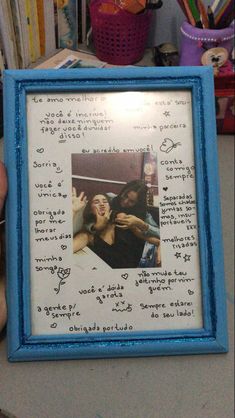 te amo melhor a
você é incrível
não deixe ninguém
fazer você duvidar
disso!
minha parceira
eu acredito em você!
Sorria
você é
única
obrigada
por me-
lhorar
meus dias
minha
sonha
a gente p/
sempre
conta
comigo
sempre
Separadas
Somos chatas
juntas
somos insu-
portáveis
melhores
risadas
não mude teu
jeitinho por nin-
guém.
você é doida
garota
Sempre estarei
do seu lado!
Obrigada por tudo